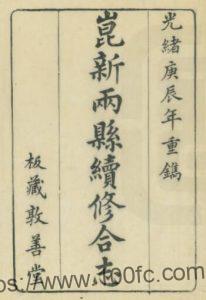 光緒庚辰年重鐫
崑新兩縣續修合志
板藏敦善堂
https://www.600fc.com